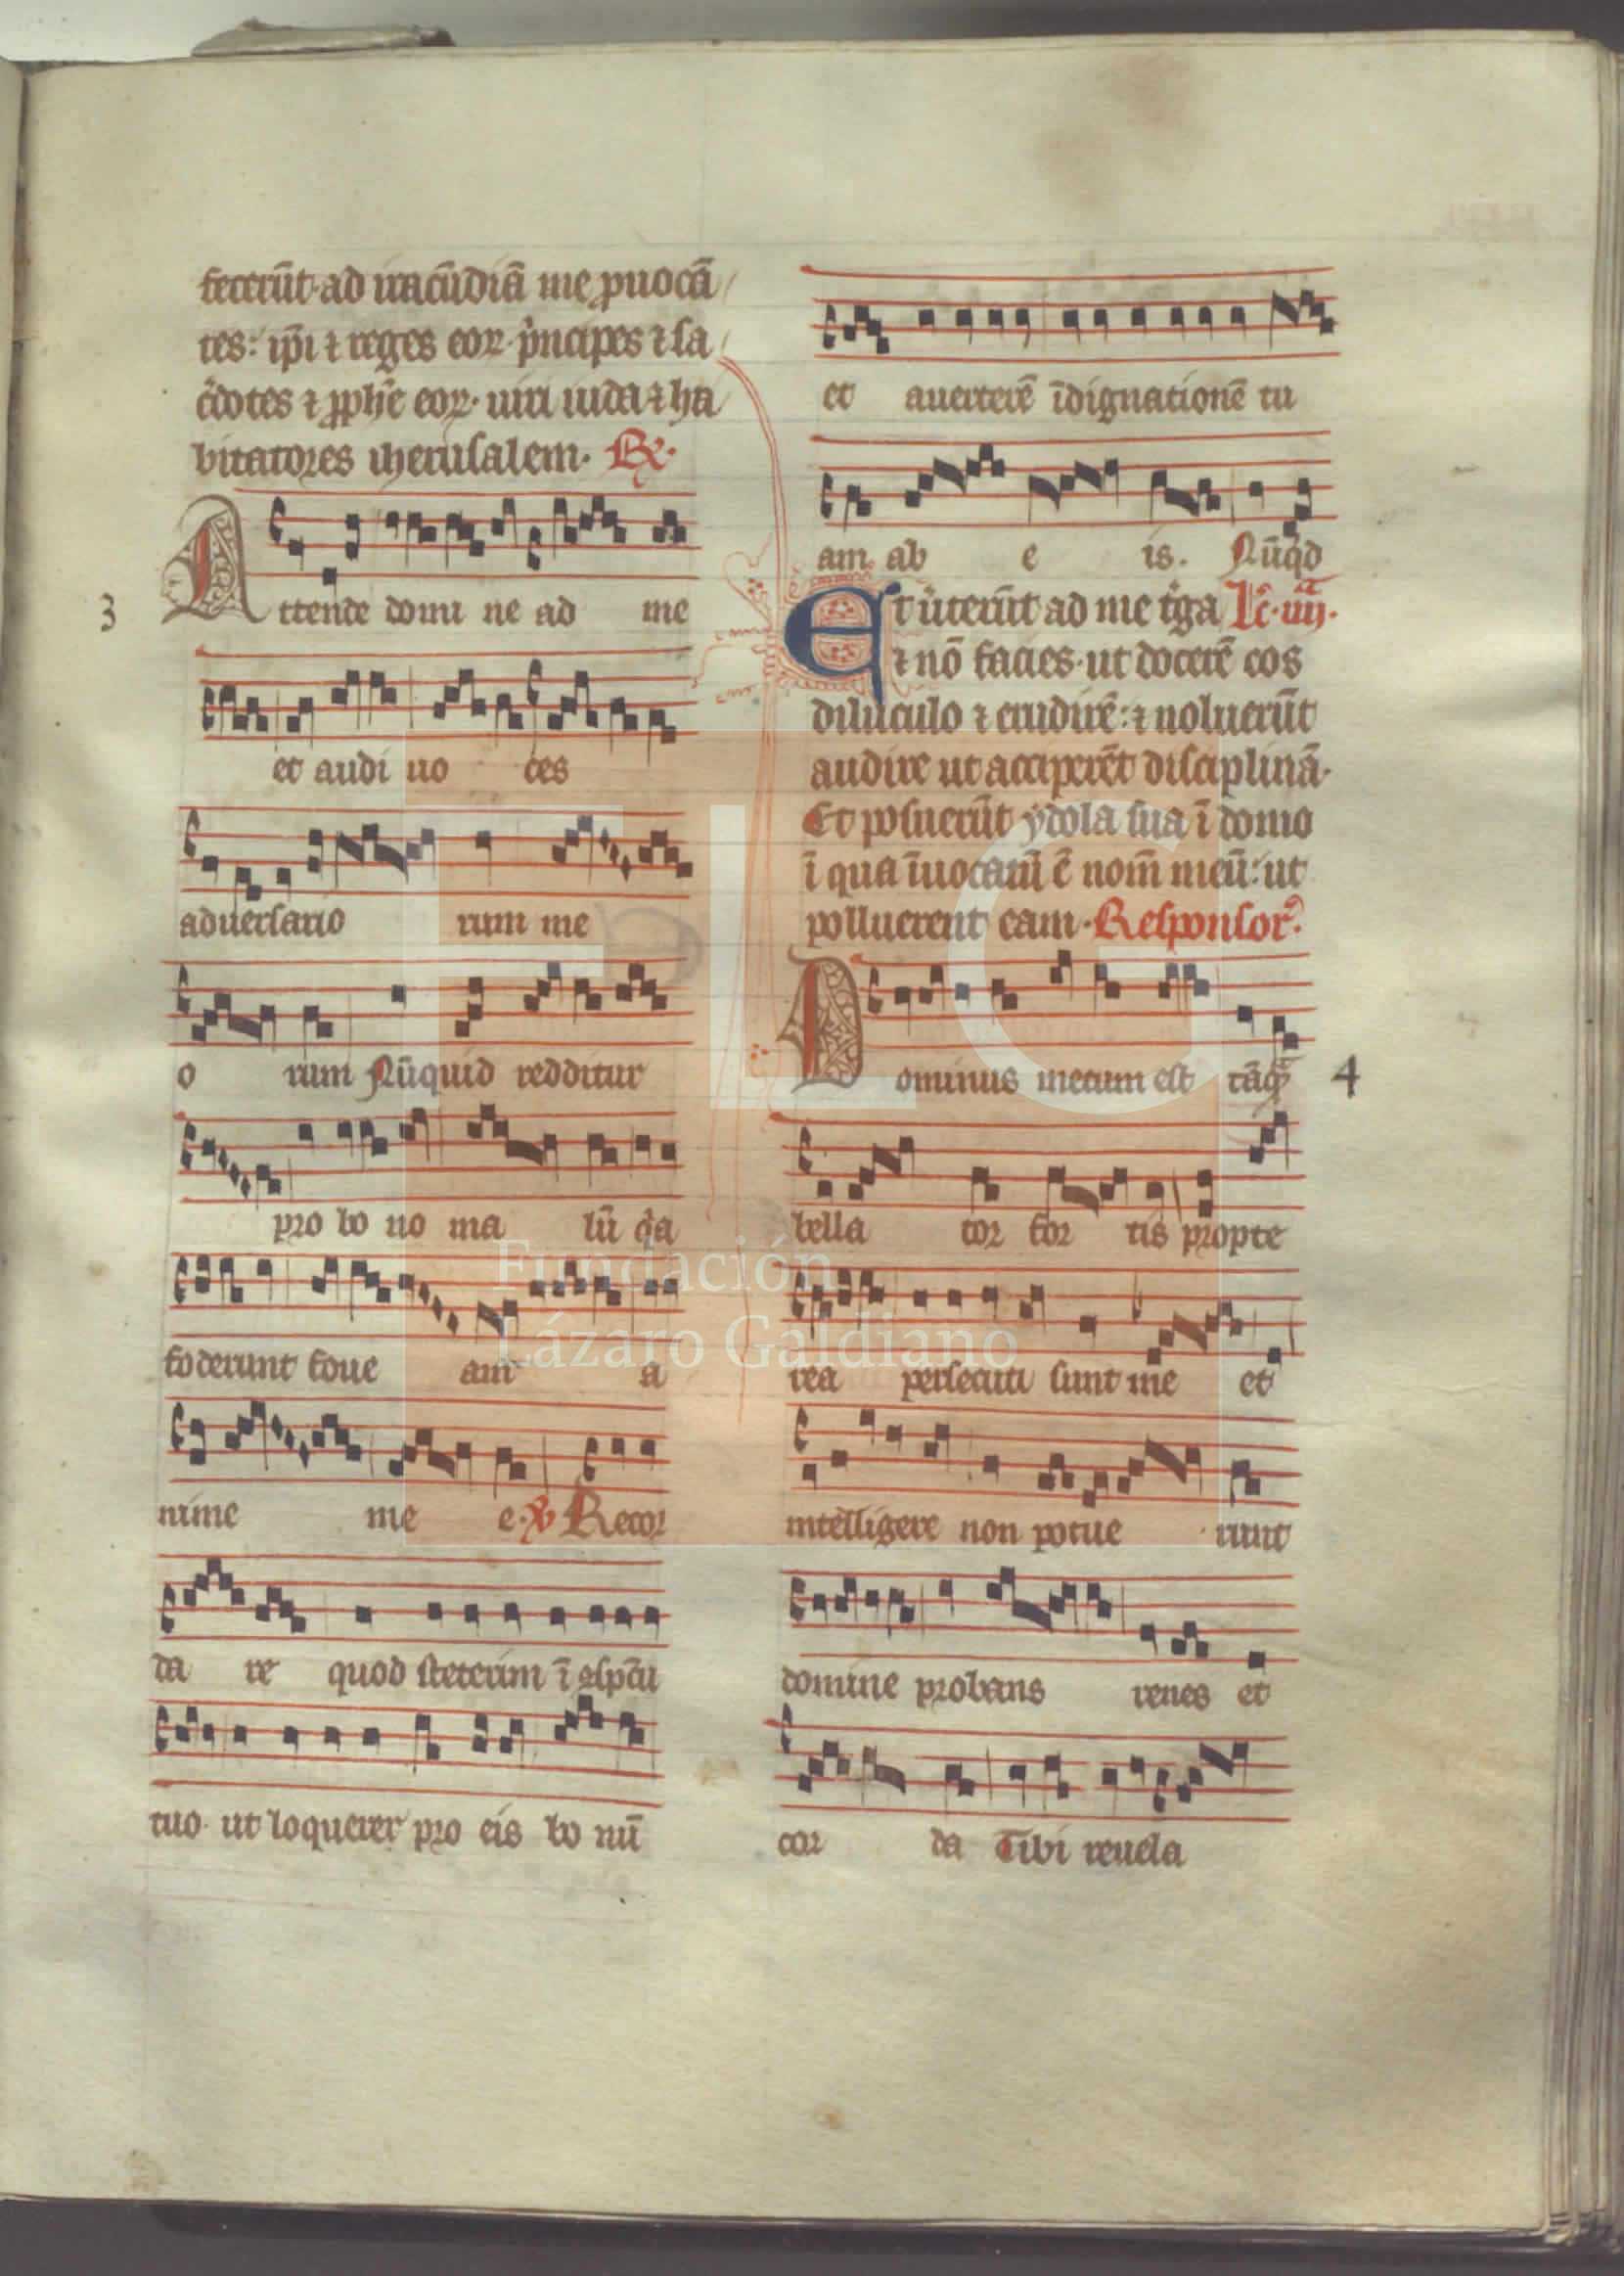 fecerūt·ad iracūdiā me ꝓuocā
tes: ip̄i ⁊ reges eoꝝ· p̓ncipes ⁊ sa
c̓dotes ⁊ ꝓph̄e eoꝝ· uiri iuda ⁊ ha
bitatores iherusalem· R℣·
3
Attende domi ne ad me
et audi uo ces
aduersario rum me
o rum Nūquid redditur
pro bo no ma lū q̓a
foderunt foue am a
nime me e· ℣ Recor
da re quod steterim ī ꝯspcū
tuo· ut loquerer pro eis bo nū
et auerterē īdignationē tu
am ab e is. Nūq̓d
Et u̓terūt ad me t̓ga Lc̄·iiij·
⁊ nō facies·ut docerē eos
diluculo ⁊ erudirē: ⁊ noluerūt
audire ut acciperēt disciplinā·
Et posuerūt ydola sua ī domo
ī qua īuocatū ē nom̄ meū: ut
polluerent eam· Responsor̄·
Dominus mecum est tāq̄
4
bella tor for tis propte
rea persecuti sunt me et
intelligere non potue runt
domine probans renes et
cor da Tibi reuela
FLG
Fundación
Lázaro Galdiano